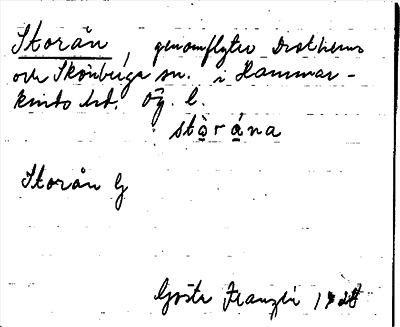 Storån, genomflyter Drothems
och Skönberga snr. i Hammar-
kinds hd. Ög. l.
stòrána
Storån G
Gösta Franzén 1928